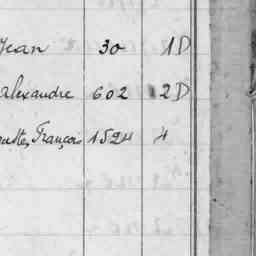 Jean 30 1D
Alexandre 602 2D
François 1524 4